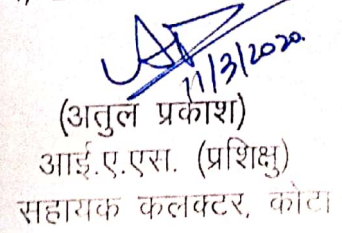 11/3/2020
(अतुल प्रकाश)
आई.ए.एस. (प्रशिक्षु)
सहायक कलक्टर, कोटा